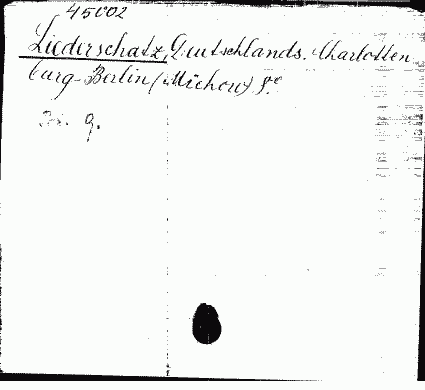 45002
Liederschatz, Deutschlands. Charlotten
burg-Berlin (Michow) 8°
9.